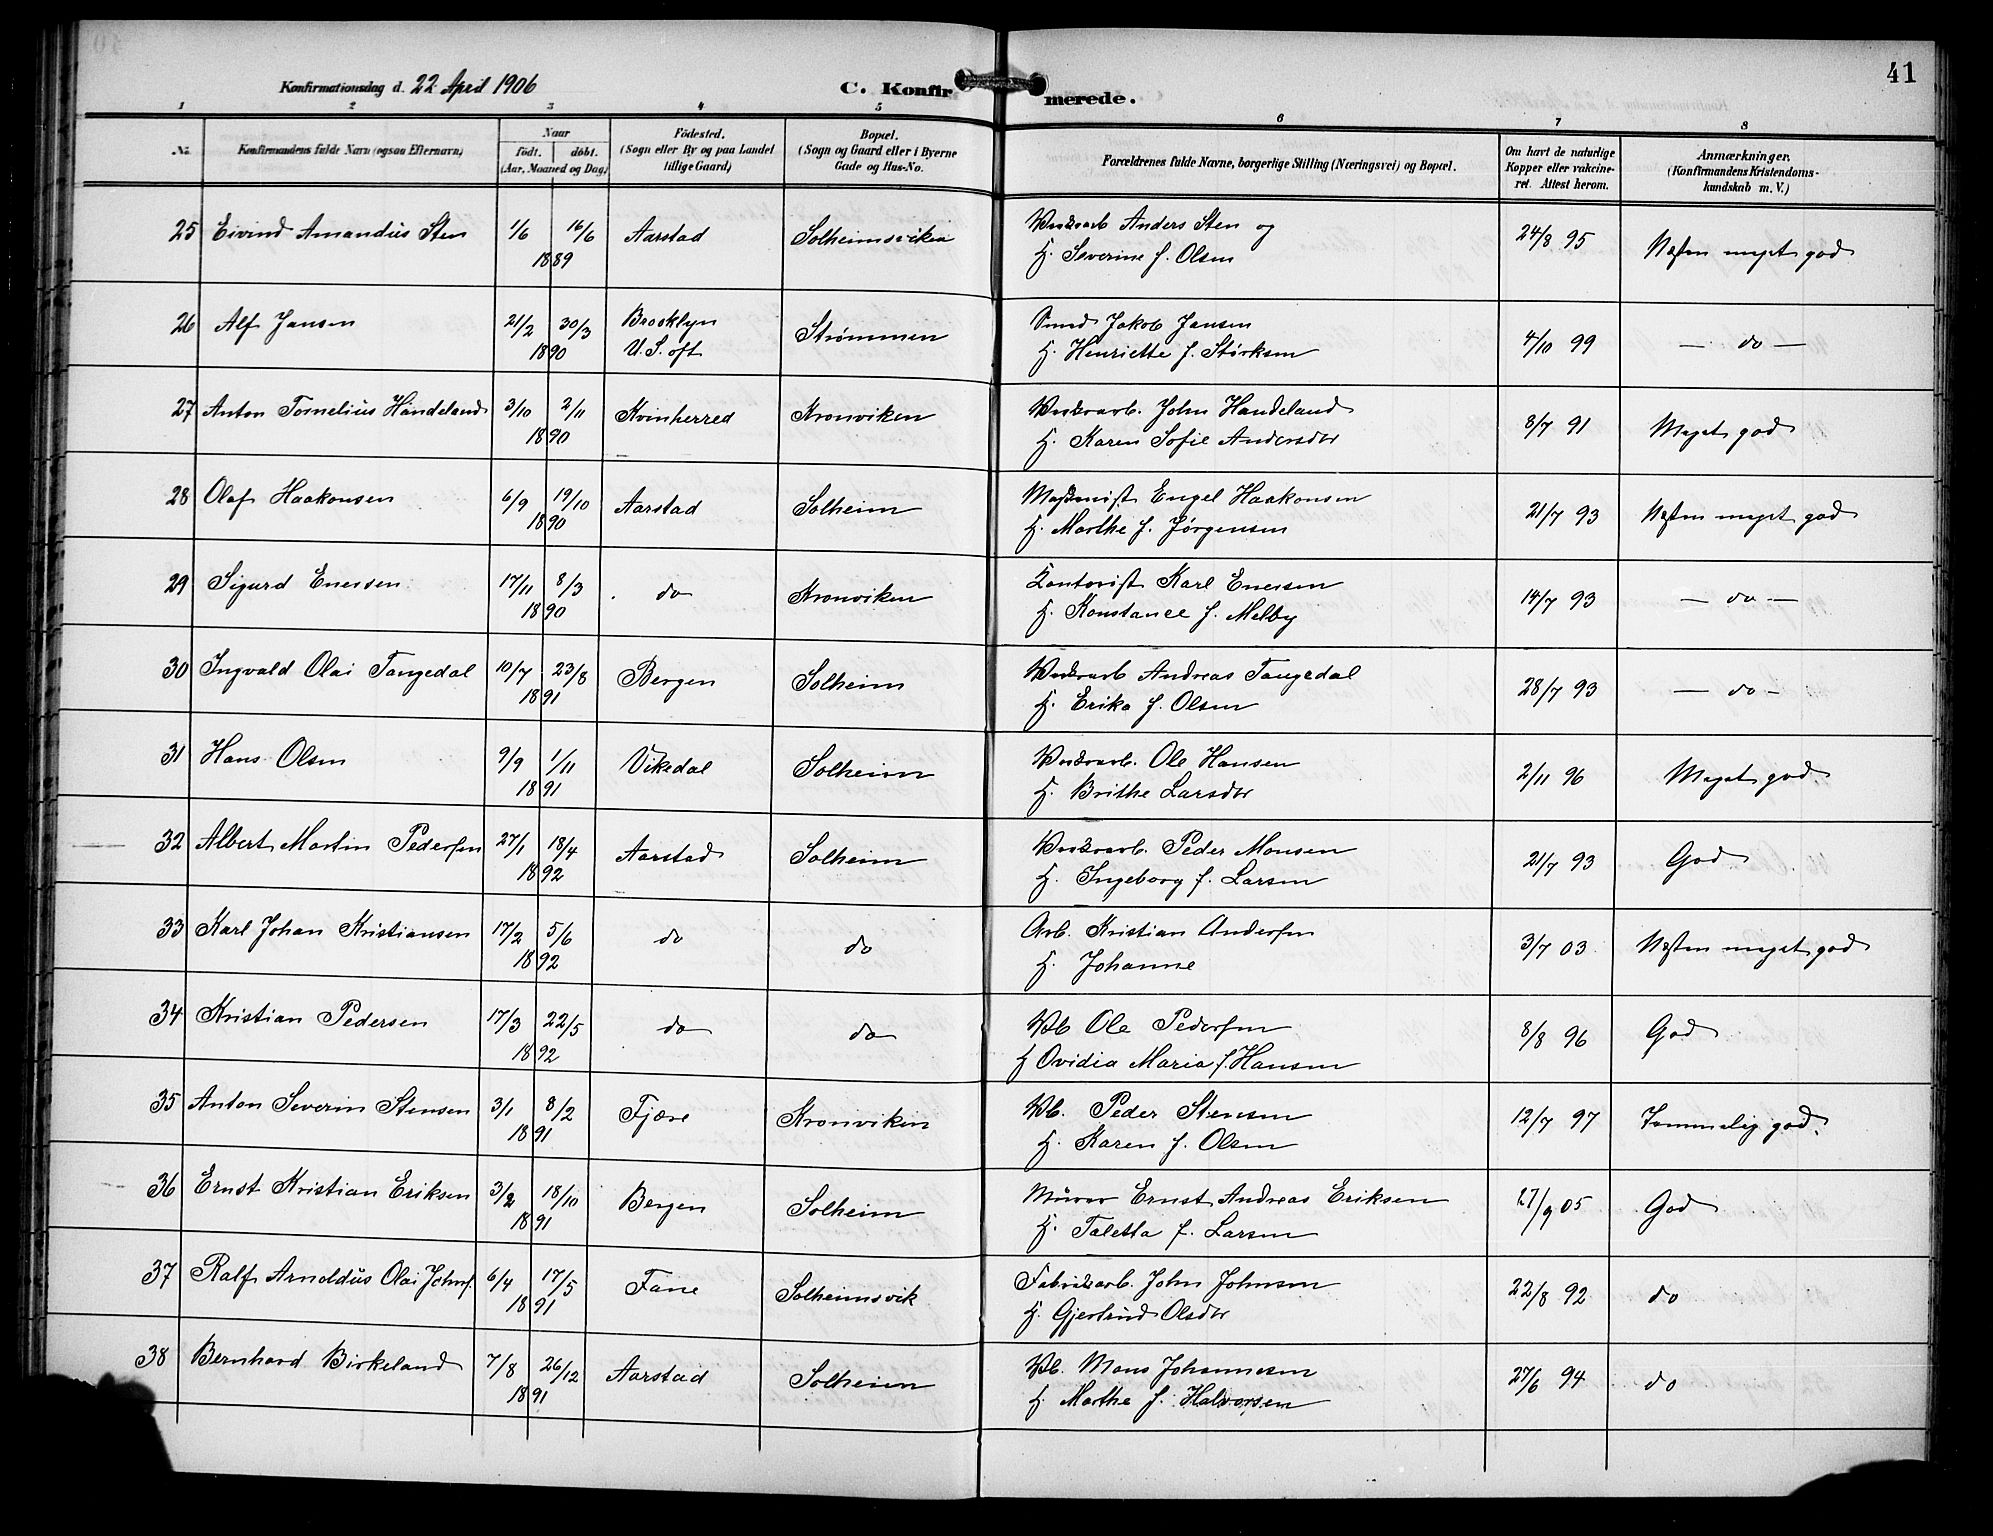 41
Konfirmationsdag d. 22 April 1906
C. Konfirmerede.
1 2 3 4 5 6 7 8
No. | Konfirmandens fulde Navn (ogsaa Efternavn) | Naar födt. döbt. (Aar, Maaned og Dag) | Födested. (Sogn eller By og paa Landet tillige Gaard) | Bopæl. (Sogn og Gaard eller i Byerne Gade og Hus-No. | Forældrenes fulde Navne, borgerlige Stilling (Næringsvei) og Bopæl. | Om havt de naturlige Kopper eller vakcineret. Attest herom. | Anmærkninger. (Konfirmandens Kristendomskundskab m. V.)
25 Eivind Amandus Sten 1/6 16/6 1889 Aarstad Solheimsviken Verksarb Anders Sten og
H. Severine f. Olsen 24/8 95 Næsten meget god
26 Alf Jansen 21/2 30/3 1890 Brooklyn U.S. oft Strømmen Smed Jakob Jansen
H. Henriette f. Størksen 4/10 99 — do —
27 Anton Tornelius Handeland 3/10 2/11 1890 Kvinherred Kronviken Verksarb. John Handeland
H. Karen Sofie Andersdtr 8/7 91 Meget god
28 Olaf Haakonsen 6/9 19/10 1890 Aarstad Solheim Maskinist Engel Haakonsen
H. Marthe f. Jørgensen 21/7 93 Næsten meget god
29 Sigurd Enersen 17/11 8/3 1890 do Kronviken Kontorist Karl Enersen
H. Konstance f. Melby 14/7 93 — do —
30 Ingvald Olai Tangedal 10/7 23/8 1891 Bergen Solheim Verksarb Andreas Tangedal
H. Erika f. Olsen 28/7 93 — do —
31 Hans Olsen 9/9 1/11 1891 Vikedal Solheim Verksarb. Ole Hansen
H. Brithe Larsdtr 2/11 96 Meget god
32 Albert Martin Pedersen 27/1 18/4 1892 Aarstad Solheim Verksarb. Peder Monsen
H. Ingeborg f. Larsen 21/7 93 God
33 Karl Johan Kristiansen 17/2 5/6 1892 do do Arb. Kristian Andersen
H. Johanne 3/7 03 Næsten meget god
34 Kristian Pedersen 17/3 22/5 1892 do do Vb Ole Pedersen
H Ovidia Maria f. Hansen 8/8 96 God
35 Anton Severin Stensen 3/1 8/2 1891 Fjære Kronviken Vb. Peder Stensen
H. Karen f. Olsen 12/7 97 Temmelig god.
36 Ernst Kristian Eriksen 3/2 18/10 1891 Bergen Solheim Murer Ernst Andreas Eriksen
H. Taletta f. Larsen 27/9 05 God
37 Ralf Arnoldus Olai Johns. 6/4 17/5 1891 Fane Solheimsvik Fabriksarb. John Johnsen
H. Gjertrud Olsdtr 22/8 92 do
38 Bernhard Birkeland 7/8 26/12 1891 Aarstad Solheim Vb. Mons Johannesen
H. Marthe f. Halvorsen 27/6 94 do